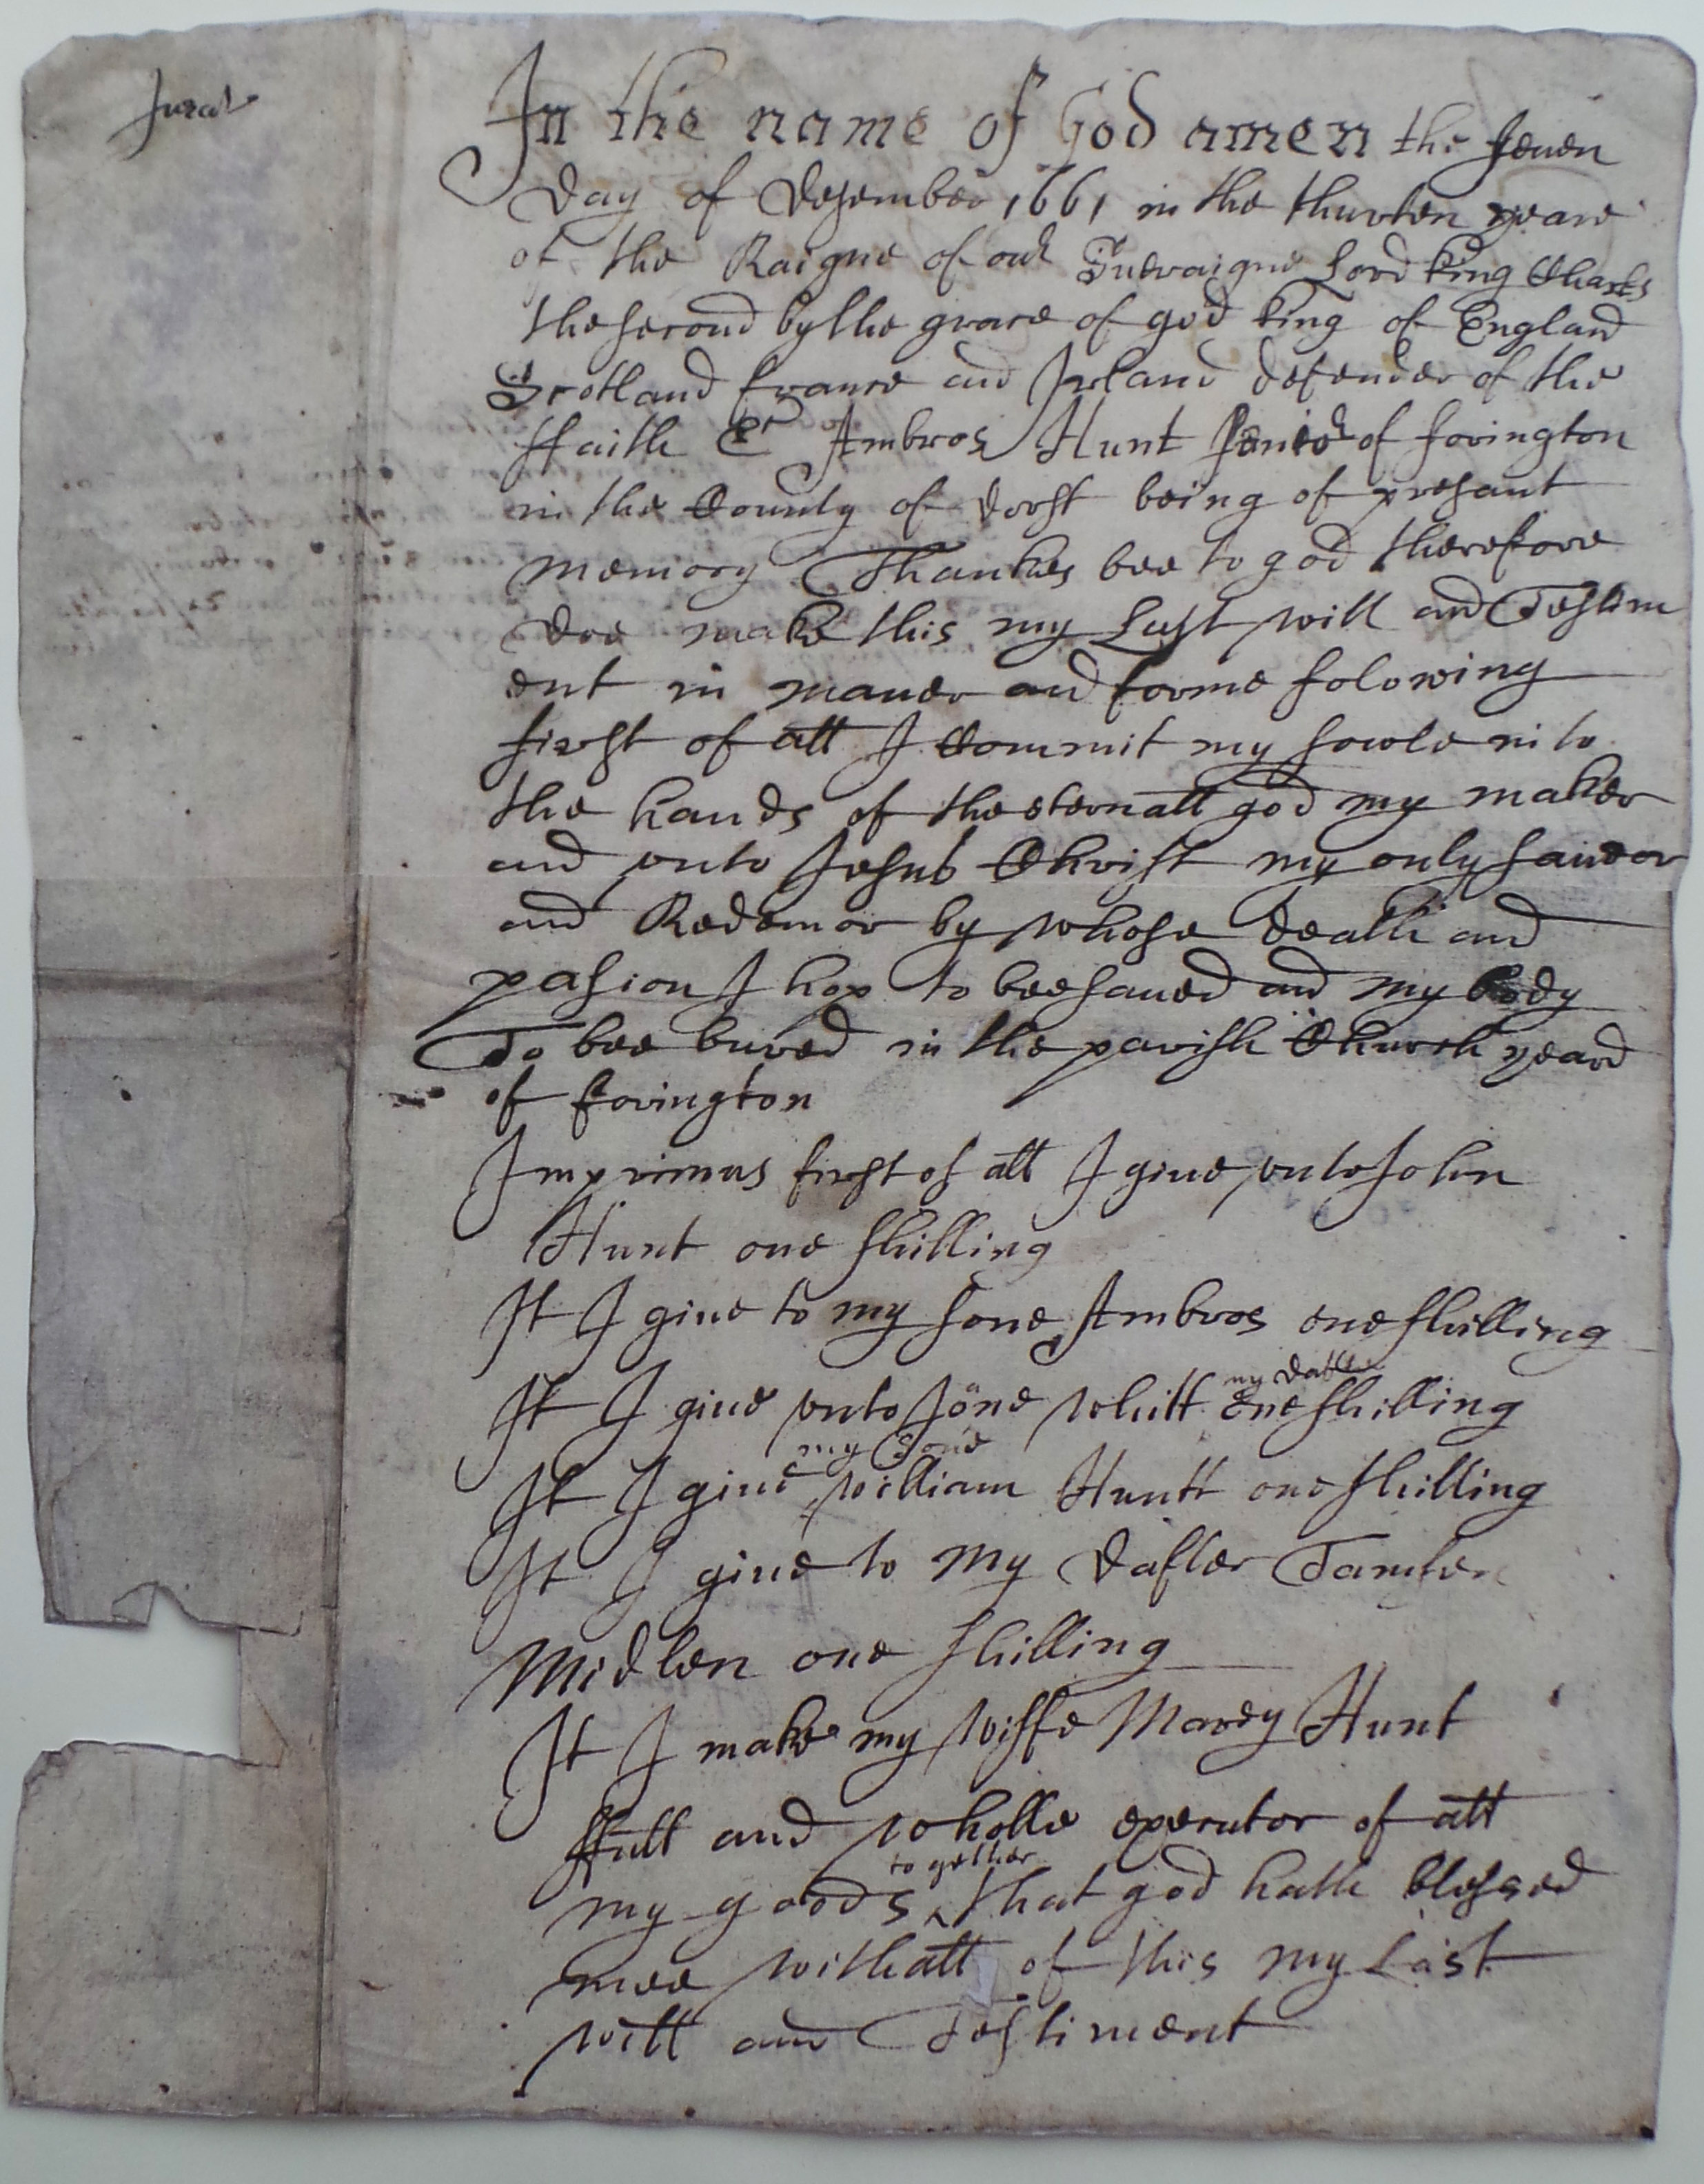 Jurat
In the name of God amen the seuen
Day of Desember 1661 in the thurten yeare
of the Raigne of our Sueraigne Lord king Charles
the second by the grace of god king of England
Scotland france and Jrland defender of the
ffaith &c Ambros Hunt senior of fovington
in the County of dorst being of presant
memory Thankes bee to god therefore
doe make this my Last will and Testim
ent in maner and forme folowing
first of all I Commit my sowle into
the hands of the eternall god my maker
and vnto Jesus Christ my only saueor
and Redemor by whose death and
pasion I hop to bee saued and my body
To bee bured in the parish Church yeard
of fovington
Imprimus first of all I giue vnto John
Hunt one shilling
It I giue to my sone Ambros one shilling
It I giue vnto Jone whitt my dafter one shilling
It I giue my sone william Huntt one shilling
It I giue to my dafter Tamsen
Midlen one shilling
It I make my wiffe Marey Hunt
ffull and wholle executor of all
my goods together that god hath blessed
mee withall of this my Last
will and Testiment